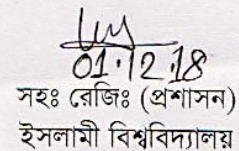 01.12.18
সহঃ রেজিঃ (প্রশাসন)
ইসলামী বিশ্ববিদ্যালয়